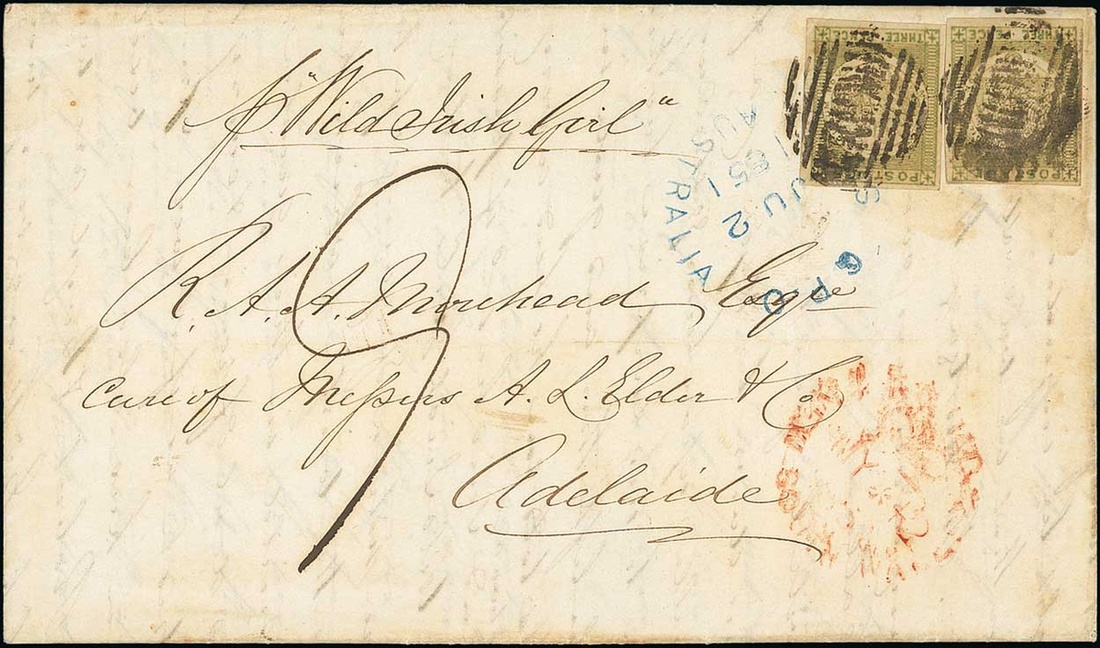 THREE PENCE
POSTAGE
THREE PENCE
POSTAGE
p "Wild Irish Girl"
G P O
S AUSTRALIA
JU 2
1851
9
R. A. A. Morehead Esqre
Care of Messers A. L. Elder & Co
Adelaide